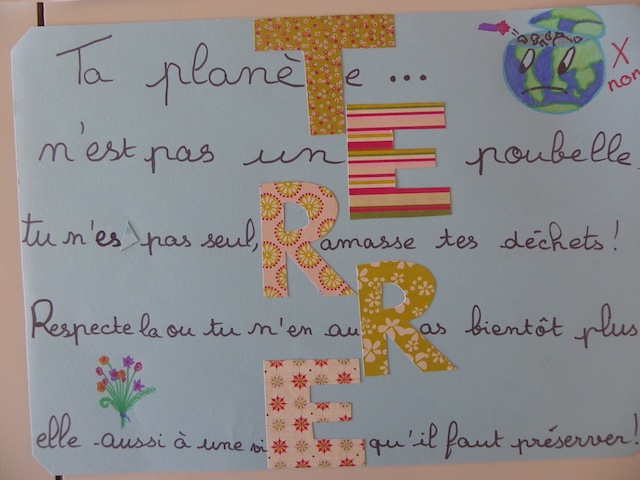 Ta planèTe ...
X
non
n'est pas unE poubelle,
tu n'es pas seul, Ramasse tes déchets!
Respecte la ou tu n'en auRas bientôt plus
elle aussi à une viE qu'il faut préserver!